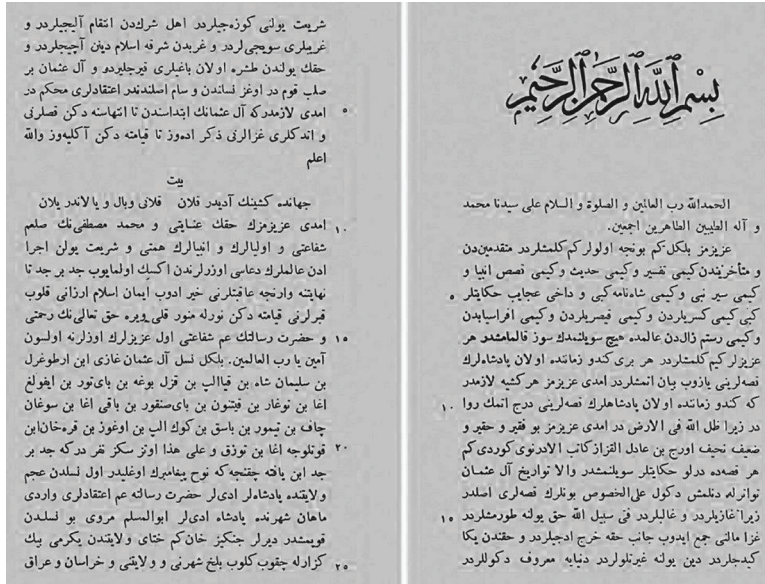 بِسْمِ اللّٰهِ الرَّحْمٰنِ الرَّحِيمِ
الحمدالله رب العالمين و الصلوة و السلام على سيدنا محمد
و آله الطيبين الطاهرين اجمعين.
عزيزمز بلكل كم بونجه اولولر كم كلمشلردر متقدمين‌دن
و متأخريندن كيمى تفسير وكيمى حديث وكيمى قصص انبيا و
كيمى سير نبى وكيمى شاه‌نامه كبى و داخى عجايب حكايتلر ٥
كبى كيمى كسريلردن وكيمى قيصريلردن وكيمى افراسيابدن
وكيمى رستم زال‌دن عالمده هيچ سويلنمدك سوز قالمامشدر هر
عزيزلر كيم كلمشلردر هر برى كندو زماننده اولان پادشاه‌لرك
قصه‌لرينى يازوب بيان اتمشلردر امدى عزيزمز هر كشيه لازمدر
كه كندو زماننده اولان پادشاهلرك قصه‌لرينى درج اتمك روا ١٠
در زيرا ظل الله فى الارض در امدى عزيزمز بو فقير و حقير و
ضعيف نحيف اورج بن عادل القزاز كاتب الادرنوى كوردى كم
هر قصه‌ده درلو حكايتلر سويلنمشدر والا تواريخ آل عثمان
تواترله دنلمش دكول على‌الخصوص بونلرك قصه‌لرى اصلدر
زيرا غازيلردر و غالبلردر فى سبيل الله حق يولنه طورمشلردر ١٥
غزا مالنى جمع ايدوب جانب حقه خرج ادجيلردر و حقندن يكا
كيدجلردر دين يولنه غيرتلولردر دنيايه معروف دكوللردر
شريعت يولنى كوزه‌جيلردر اهل شرك‌دن انتقام آليجيلردر و
غريبلرى سويجى‌لردر و غربدن شرقه اسلام دينن آچيجلردر و
حقك يولندن طشره اولان باغيلرى قيرجليردو و آل عثمان بر
صلب قوم در اوغز نساندن و سام اسلندندر اعتقادلرى محكم در
امدى لازمدركه آل عثمانك ابتداسندن تا انتهاسنه دكن فصلرنى ٥
و اندكلرى غزالرنى ذكر اده‌وز تا قيامته دكن آكليه‌وز والله
اعلم
بيت
جهانده كشينك آديدر قلان قلانى وبال و يا لاندر يلان
امدى عزيزمزك حقك عنايتى و محمد مصطفى‌نك صلعم ١٠
شفاعتى و اوليالرك و انبيالرك همتى و شريعت يولن اجرا
ادن عالملرك دعاسى اوزرلرندن اكسك اولمايوب جد بر جد تا
نهايتنه وارنجه عاقبتلرنى خير ادوب ايمان اسلام ارزانى قلوب
قبرلرنى قيامته دكن نورله منور قلى ويره حق تعالى‌نك رحمتى
و حضرت رسالتك عم شفاعتى اول عزيزلرك اوزلرنه اولسون ١٥
آمين يا رب العالمين. بلكل نسل آل عثمان غازى ابن ارطوغرل
بن سليمان شاه بن قيا‌الپ بن قزل بوغه بن باى‌تور بن ايفولغ
اغا بن توغار بن قيتنون بن باى‌صنقور بن باقى اغا بن سوغان
چاف بن تيمور بن باسق بن كوك الپ بن اوغوز بن قره‌خان‌ابن
قوتلوجه اغا بن توزق و على هذا اوتز سكز نفر دركه جد بر ٢٠
جد ابن يافثه چقنجه‌كه نوح پيغامبرك اوغليدر اول نسلدن عجم
ولايقنده پادشاه‌لر ادى‌لر حضرت رسالته عم اعتقادلرى واردى
ماهان شهرنده پادشاه ادى‌لر ابوالمسلم مروى بو نسلدن
قوپمشدر ديرلر جنكيز خان كم ختاى ولايقندن يكرمى بيك
كزارله چقوب كلوب بلخ شهرنى و ولايقنى و خراسان و عراق ٢٥